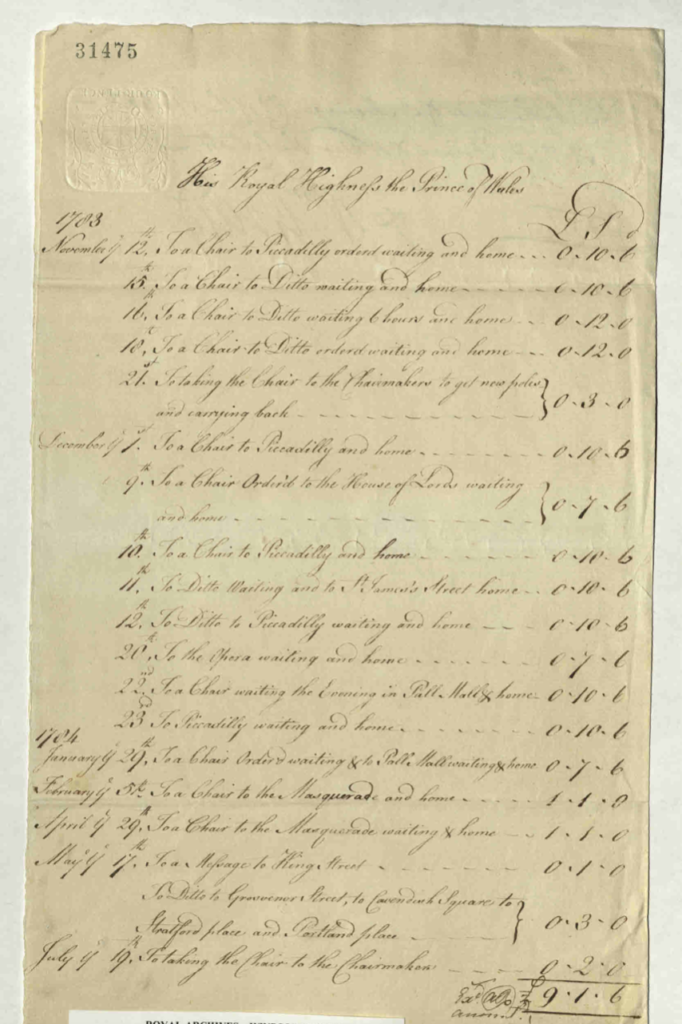 31475
His Royal Highness the Prince of Wales
1783 £ S d
November ye 12th To a Chair to Piccadilly orderd waiting and home 0-10-6
15th To a Chair to Ditto waiting and home 0-10-6
16th To a Chair to Ditto waiting 6 hours and home 0-12-0
18th To a Chair to Ditto orderd waiting and home 0-12-0
21st To taking the Chair to the Chairmakers to get new poles
and carrying back 0-3-0
December ye 1st To a Chair to Piccadilly and home 0-10-6
9th To a Chair Order'd to the House of Lords waiting
and home 0-7-6
10th To a Chair to Piccadilly and home 0-10-6
11th To Ditto Waiting and to St James's Street home 0-10-6
12th To Ditto to Piccadilly waiting and home 0-10-6
20th To the Opera waiting and home 0-7-6
22nd To a Chair waiting the Evening in Pall Mall & home 0-10-6
23rd To Piccadilly waiting and home 0-10-6
1784
January ye 29th To a Chair Orderd waiting & to Pall Mall waiting & home 0-7-6
February ye 5th To a Chair to the Masquerade and home 1-1-0
April ye 29th To a Chair to the Masquerade waiting & home 1-1-0
May ye 17th To a Message to King Street 0-1-0
To Ditto to Grosvenor Street, to Cavendish Square to
Stratford place and Portland place 0-3-0
July ye 19th To taking the Chair to the Chairmakers 0-2-0
£ 9-1-6